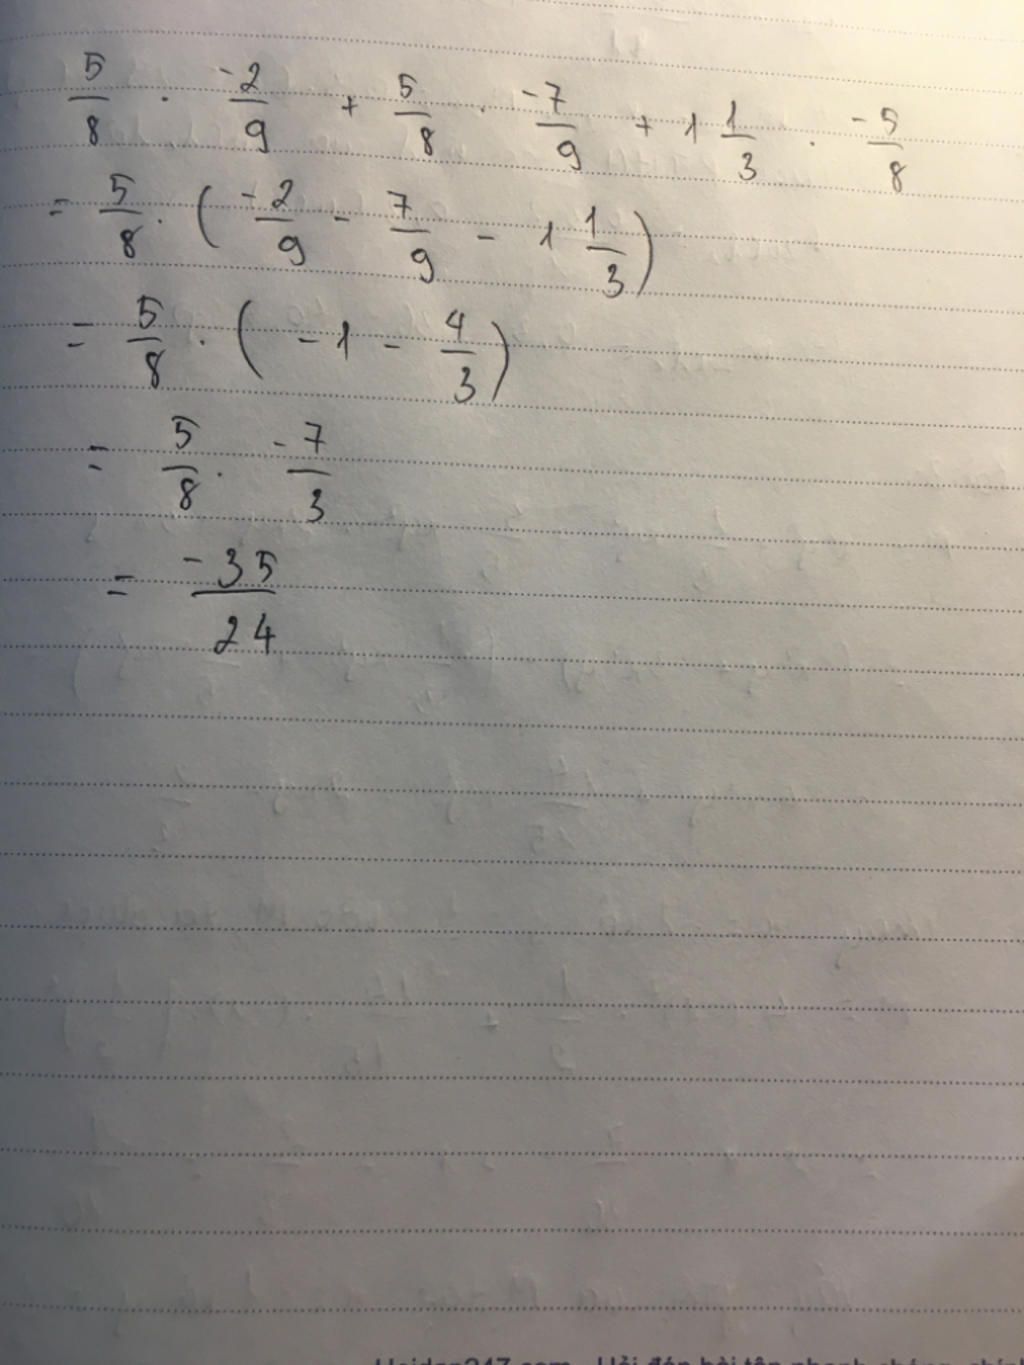 5/8 . -2/9 + 5/8 . -7/9 + 1 1/3 . -5/8
= 5/8 . ( -2/9 - 7/9 - 1 1/3 )
= 5/8 . ( -1 - 4/3 )
= 5/8 . -7/3
= -35/24